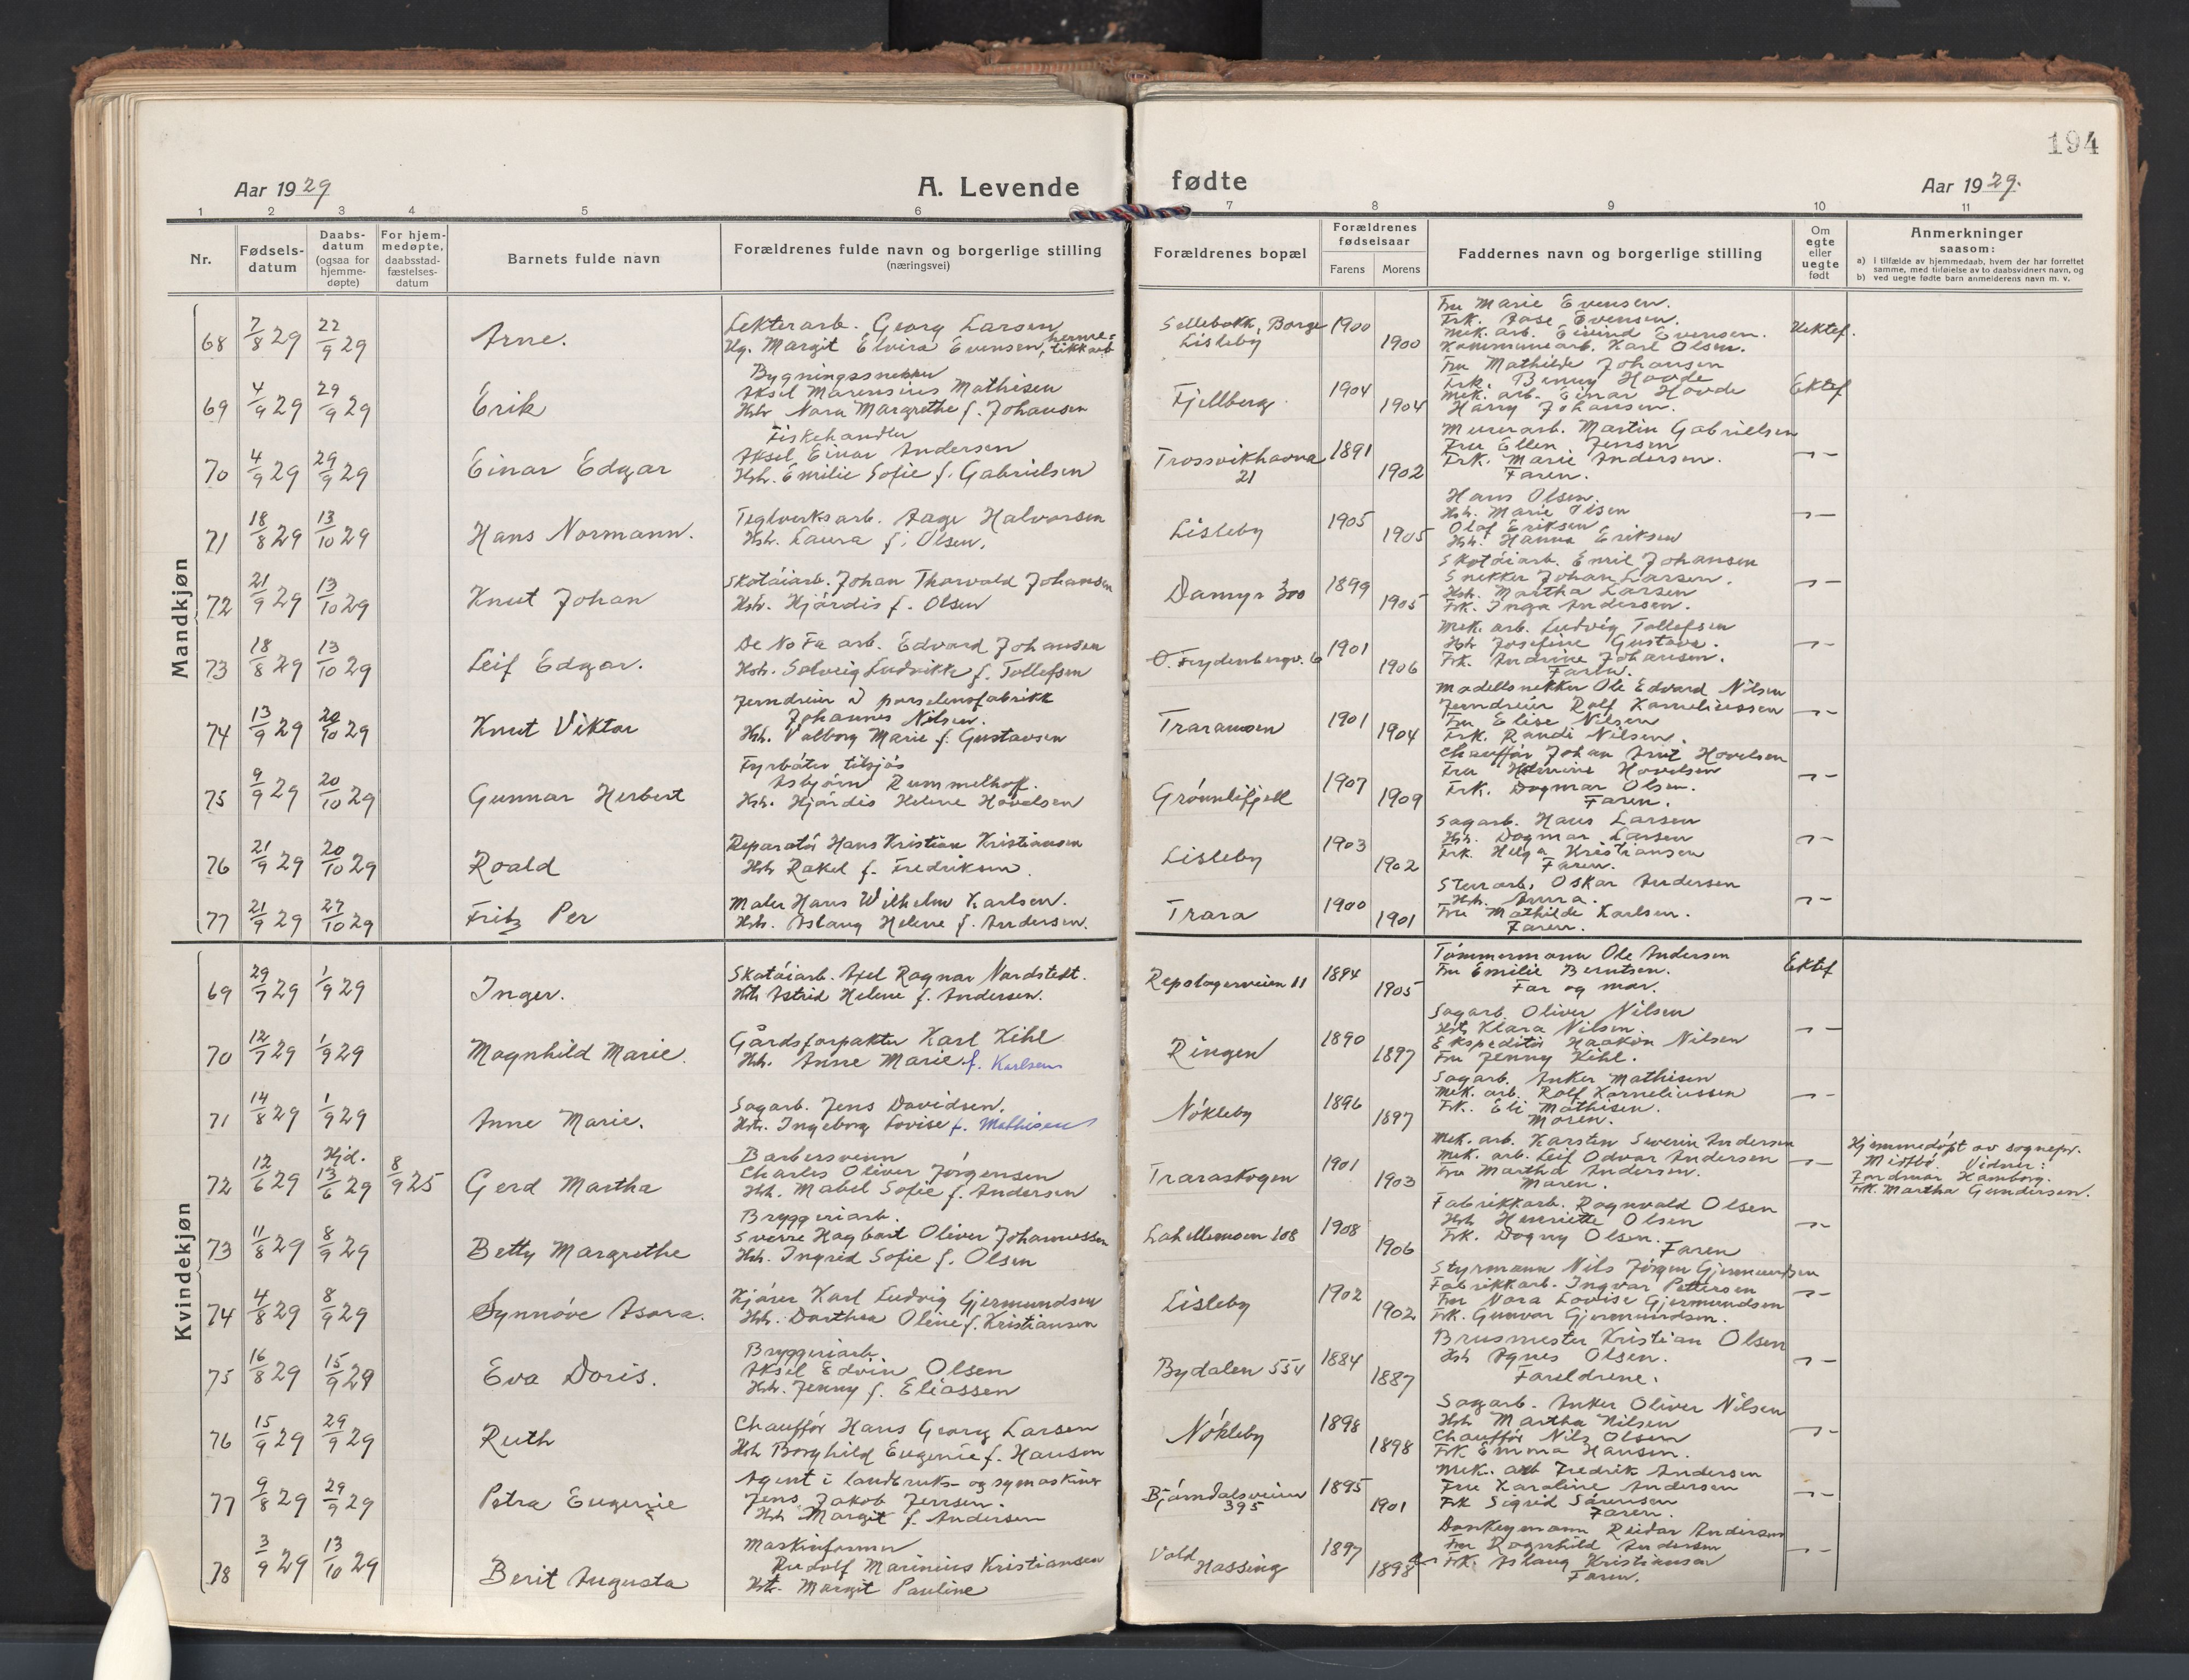 194
Aar 1929
A. Levende fødte
Aar 1929.
1 2 3 4 5 6 7 8 9 10 11
Nr.
Fødsels-
datum
Daabs-
datum
(ogsaa for
hjemme-
døpte)
For hjem-
medøpte,
daabsstad-
fæstelses-
datum
Barnets fulde navn
Forældrenes fulde navn og borgerlige stilling
(næringsvei)
Forældrenes bopæl
Forældrenes
fødselsaar
Farens Morens
Faddernes navn og borgerlige stilling
Om
egte
eller
uegte
født
Anmerkninger
saasom:
a) i tilfælde av hjemmedaab, hvem der har forrettet
samme, med tilføielse av to daabsvidners navn, og
b) ved uegte fødte barn anmelderens navn m. v.
Mandkjøn
68 7/8 29 22/9 29 Arne.
Lekterarb. Georg Larsen
Ug. Margit Elvira Evensen, herme=
tikkarb
Sellebakk, Borge
Lisleby
1900 1900
Fru Marie Evensen.
Frk. Aase Evensen.
Mek. arb. Eivind Evensen.
Kommunearb. Karl Olsen.
Uektef.
69 4/9 29 29/9 29 Erik
Bygningssnekker
Aksel Marensius Mathisen
Hstr. Nora Margrethe f. Johansen
Fjellberg.
1904 1904
Fru Mathilde Johansen
Frk. Benny Hovde
Mek. arb. Einar Hovde
Harry Johansen.
Ektef
70 4/9 29 29/9 29 Einar Edgar
Fiskehandler
Aksel Einar Andersen
Hstr. Emilie Sofie f. Gabrielsen
Trossvikhavna
21
1891 1902
Murerarb. Martin Gabrielsen
Fru Ellen Jensen
Frk. Marie Andersen.
Faren.
71 18/8 29 13/10 29 Hans Normann.
Teglverksarb. Aage Halvorsen
Hstr. Laura f. Olsen.
Lisleby
1905 1905
Hans Olsen.
Hstr. Marie Olsen
Olaf Eriksen
Hstr. Hanna Eriksen
72 21/9 29 13/10 29 Knut Johan
Skotøiarb. Johan Thorvald Johansen
Hstr. Hjørdis f. Olsen
Damyr 300
1899 1905
Skotøiarb. Emil Johansen
Snekker Johan Larsen.
Hstr. Martha Larsen
Frk. Inga Andersen.
73 18/8 29 13/10 29 Leif Edgar.
De No Fa arb. Edvard Johansen
Hstr. Solveig Ludvikke f. Tollefsen
O. Frydenbergv. 6
1901 1906
Mek. arb. Ludvig Tollefsen
Hstr Josefine Gustavs.
Frk. Andrine Johansen.
Faren.
74 13/9 29 20/10 29 Knut Viktor
Jerndreier v porselensfabrikk
Johannes Nilsen.
Hstr. Valborg Marie f. Gustavsen
Traramoen
1901 1904
Modellsnekker Ole Edvard Nilsen
Jerndreier Rolf Korneliussen
Fru Elise Nilsen
Frk. Randi Nilsen.
75 9/9 29 20/10 29 Gunnar Herbert
Fyrbøter tilsjøs
Asbjørn Rummelhoff.
Hstr. Hjørdis Helene Hovelsen
Grønnlifjell
1907 1909
Chauffør Johan Hovelsen
Fru Hovelsen
Frk. Dagmar Olsen.
Faren.
76 21/9 29 20/10 29 Roald
Reparatør Hans Kristian Kristiansen
Hstr Rakel f. Fredriksen.
Lisleby
1903 1902
Sagarb. Hans Larsen
Hstr. Dagmar Larsen
Frk. Helga Kristiansen
Faren.
77 21/9 29 27/10 29 Fritz Per
Maler Hans Wilhelm Karlsen.
Hstr. Aslaug Helene f. Andersen.
Trara
1900 1901
Stenarb. Oskar Andersen
Hstr. Anna.
Fru Mathilde Karlsen.
Faren.
Kvindekjøn
69 29/7 29 1/9 29 Inger.
Skotøiarb. Axel Ragnar Nordstedt.
Hstr Astrid Helene f. Andersen.
Repslagerveien 11
1894 1905
Tømmermann Ole Andersen
Fru Emilie Berntsen.
Far og mor.
Ektef
70 12/7 29 1/9 29 Magnhild Marie.
Gårdsforpakter Karl Kihl
Hstr. Anne Marie f. Karlsen
Ringen
1890 1897
Sagarb. Oliver Nilsen
Hstr. Klara Nilsen.
Ekspeditør Haakon Nilsen
Fru Jenny Kihl.
71 14/8 29 1/9 29 Anne Marie.
Sagarb. Jens Davidsen.
Hstr. Ingeborg Lovise f. Mathisen
Nøkleby
1896 1897
Sagarb. Anker Mathisen
Mek. arb. Rolf Korneliussen
Frk. Eli Mathisen.
Moren.
72 12/6 29 Hjd. 13/6 29 8/9 25 Gerd Martha
Barbersvenn
Charles Oliver Jørgensen
Hstr. Mabel Sofie f. Andersen
Traraskogen
1901 1903
Mek. arb. Karsten Severin Andersen
Mek. arb. Leif Odvar Andersen
Fru Martha Andersen.
Moren.
Hjemmedøpt av sognepr.
Vidner:
Hamborg.
Frk. Martha Gundersen.
73 11/8 29 8/9 29 Betty Margrethe
Bryggeriarb.
Sverre Hagbart Oliver Johannessen
Hstr. Ingrid Sofie f. Olsen
Lahellemoen 108
1908 1906
Fabrikkarb. Ragnvald Olsen
Hstr Henriette Olsen
Frk. Dagny Olsen.
Faren
74 4/8 29 8/9 29 Synnøve Asora.
Kjører Karl Ludvig Gjermundsen
Hstr. Dorthea Oline f. Kristiansen
Lisleby
1902 1902
Styrmann Nils Jørgen Gjermundsen
Fabrikkarb. Ingvar Pettersen
Fru Nora Lovise Gjermundsen
Frk. Gunvor Gjermundsen.
75 16/8 29 15/9 29 Eva Doris.
Bryggeriarb.
Aksel Edvin Olsen
Hstr. Jenny f. Eliassen
Bydalen 554
1884 1887
Brusmester Kristian Olsen
Hstr Agnes Olsen.
Foreldrene.
76 15/9 29 29/9 29 Ruth
Chauffør Hans Georg Larsen
Hstr Borghild Eugenie f. Hansen
Nøkleby
1898 1898
Sagarb. Anker Oliver Nilsen
Hstr Martha Nilsen
Chauffør Nils Olsen
Frk Emma Hansen.
77 9/8 29 29/9 29 Petra Eugenie
Agent i landbruks- og symaskiner
Jens Jakob Jensen.
Hstr Margit f. Andersen
Bjørndalsveien
395
1895 1901
Mek. arb Fredrik Andersen
Fru Karoline Andersen
Frk Sigrid Sørensen
Faren.
78 3/9 29 13/10 29 Berit Augusta
Maskinformer
Rudolf Marinius Kristiansen
Hstr. Margit Pauline
Vold
Hassing
1897 1898
Donkeymann Reidar Andersen
Fru Ragnhild Andersen
Frk. Aslaug Kristiansen
Faren.